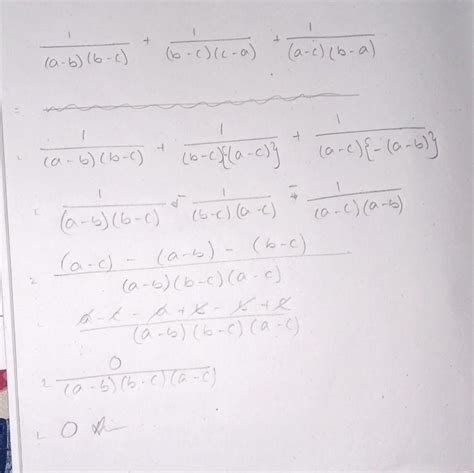 1/((a-b)(b-c)) + 1/((b-c)(c-a)) + 1/((a-c)(b-a))
=
= 1/((a-b)(b-c)) + 1/((b-c){-(a-c)}) + 1/((a-c){-(a-b)})
= 1/((a-b)(b-c)) - 1/((b-c)(a-c)) - 1/((a-c)(a-b))
= ((a-c) - (a-b) - (b-c))/((a-b)(b-c)(a-c))
= (a-c-a+b-b+c)/((a-b)(b-c)(a-c))
= 0/((a-b)(b-c)(a-c))
= 0